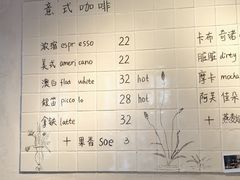 意式咖啡
浓缩 espresso 22
美式 americano 22
澳白 flat white 32 hot
短笛 piccolo 28 hot
拿铁 latte 32
+ 果香 soe 3
卡布奇诺
脏脏 dirty
摩卡 mocha
阿芙佳朵
+ 燕麦